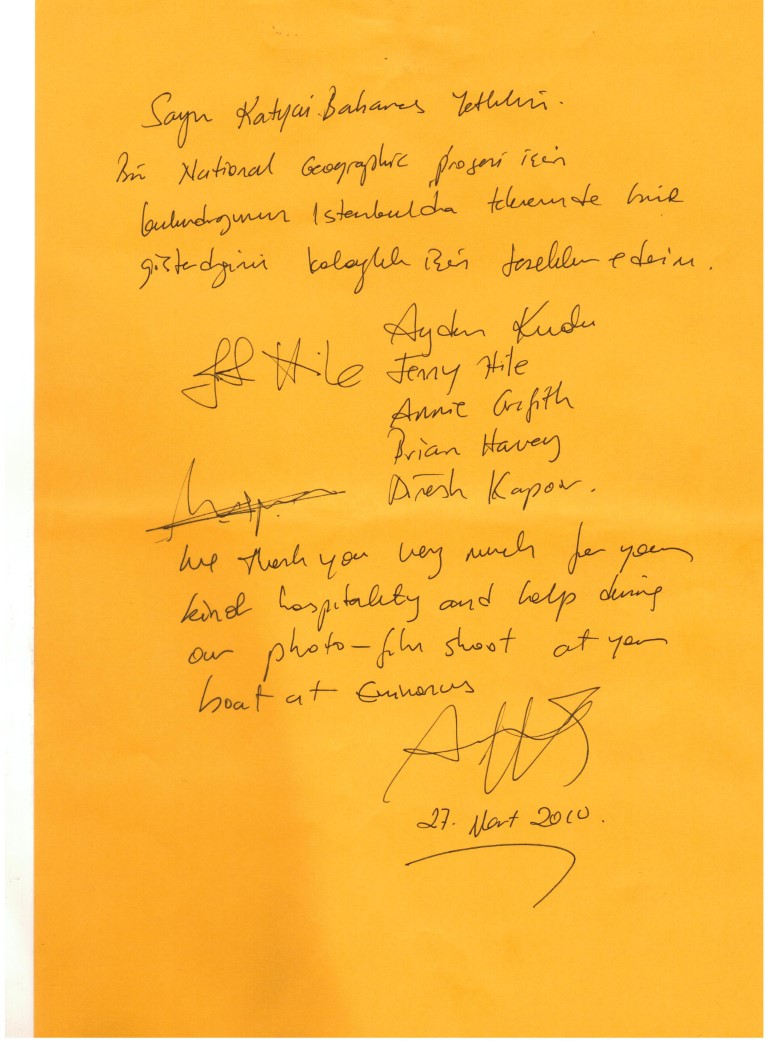 Sayın Katyai Bahaues Yetkilisi.
Bir National Geographic projesi için
bulunduğumuz Istanbulda teknenizde bize
gösterdiginiz kolaylık için tesekkür ederim.
Aydın Kudu
Jerry Hile
Hile
Annie Griffith
Brian Harvey
Dinesh Kapoor.
We thank you very much for your
kind hospitality and help during
our photo-film shoot at your
boat at Eminonus
27. Mart 2010.